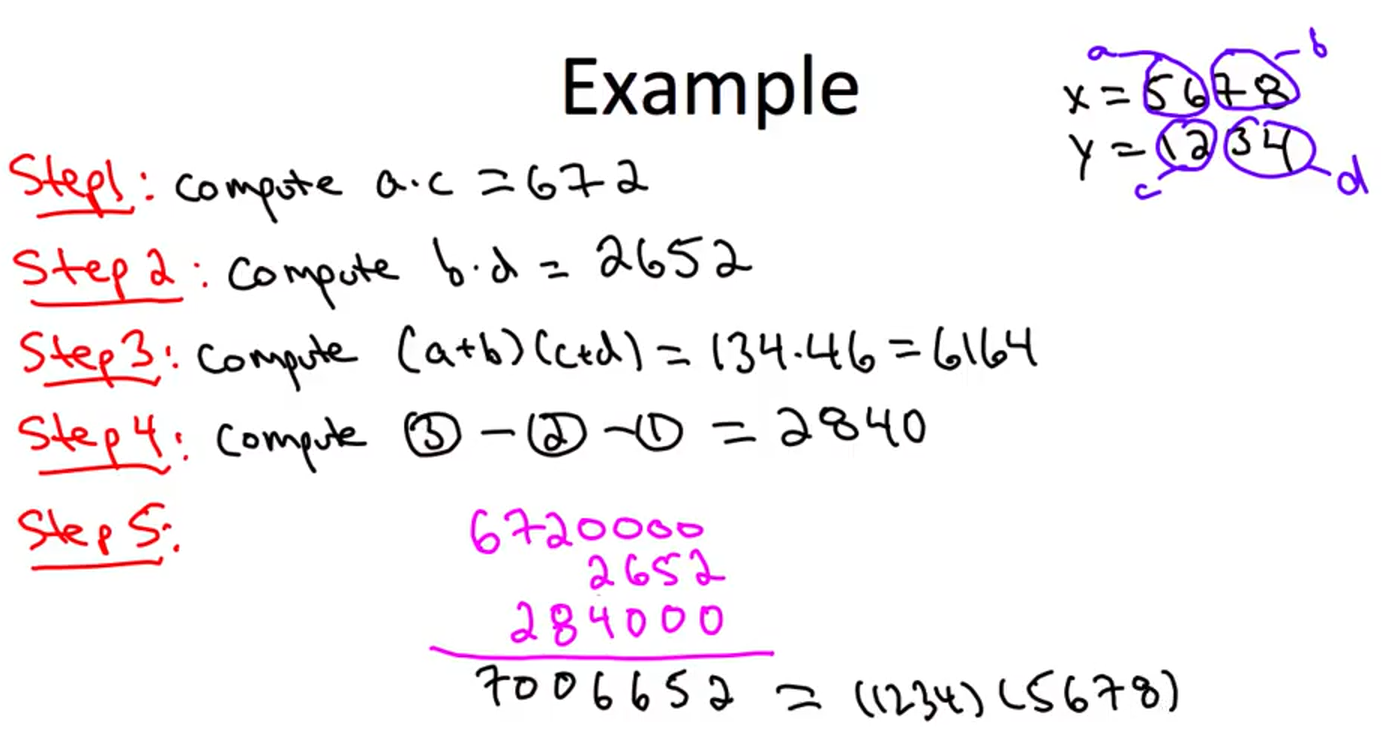 Example
a b
x = 5678
y = 1234
c d
Step1: compute a·c = 672
Step 2: compute b·d = 2652
Step3: compute (a+b)(c+d) = 134·46 = 6164
Step4: compute ③ - ② - ① = 2840
Step 5:
6720000
2652
284000
7006652 = (1234)(5678)